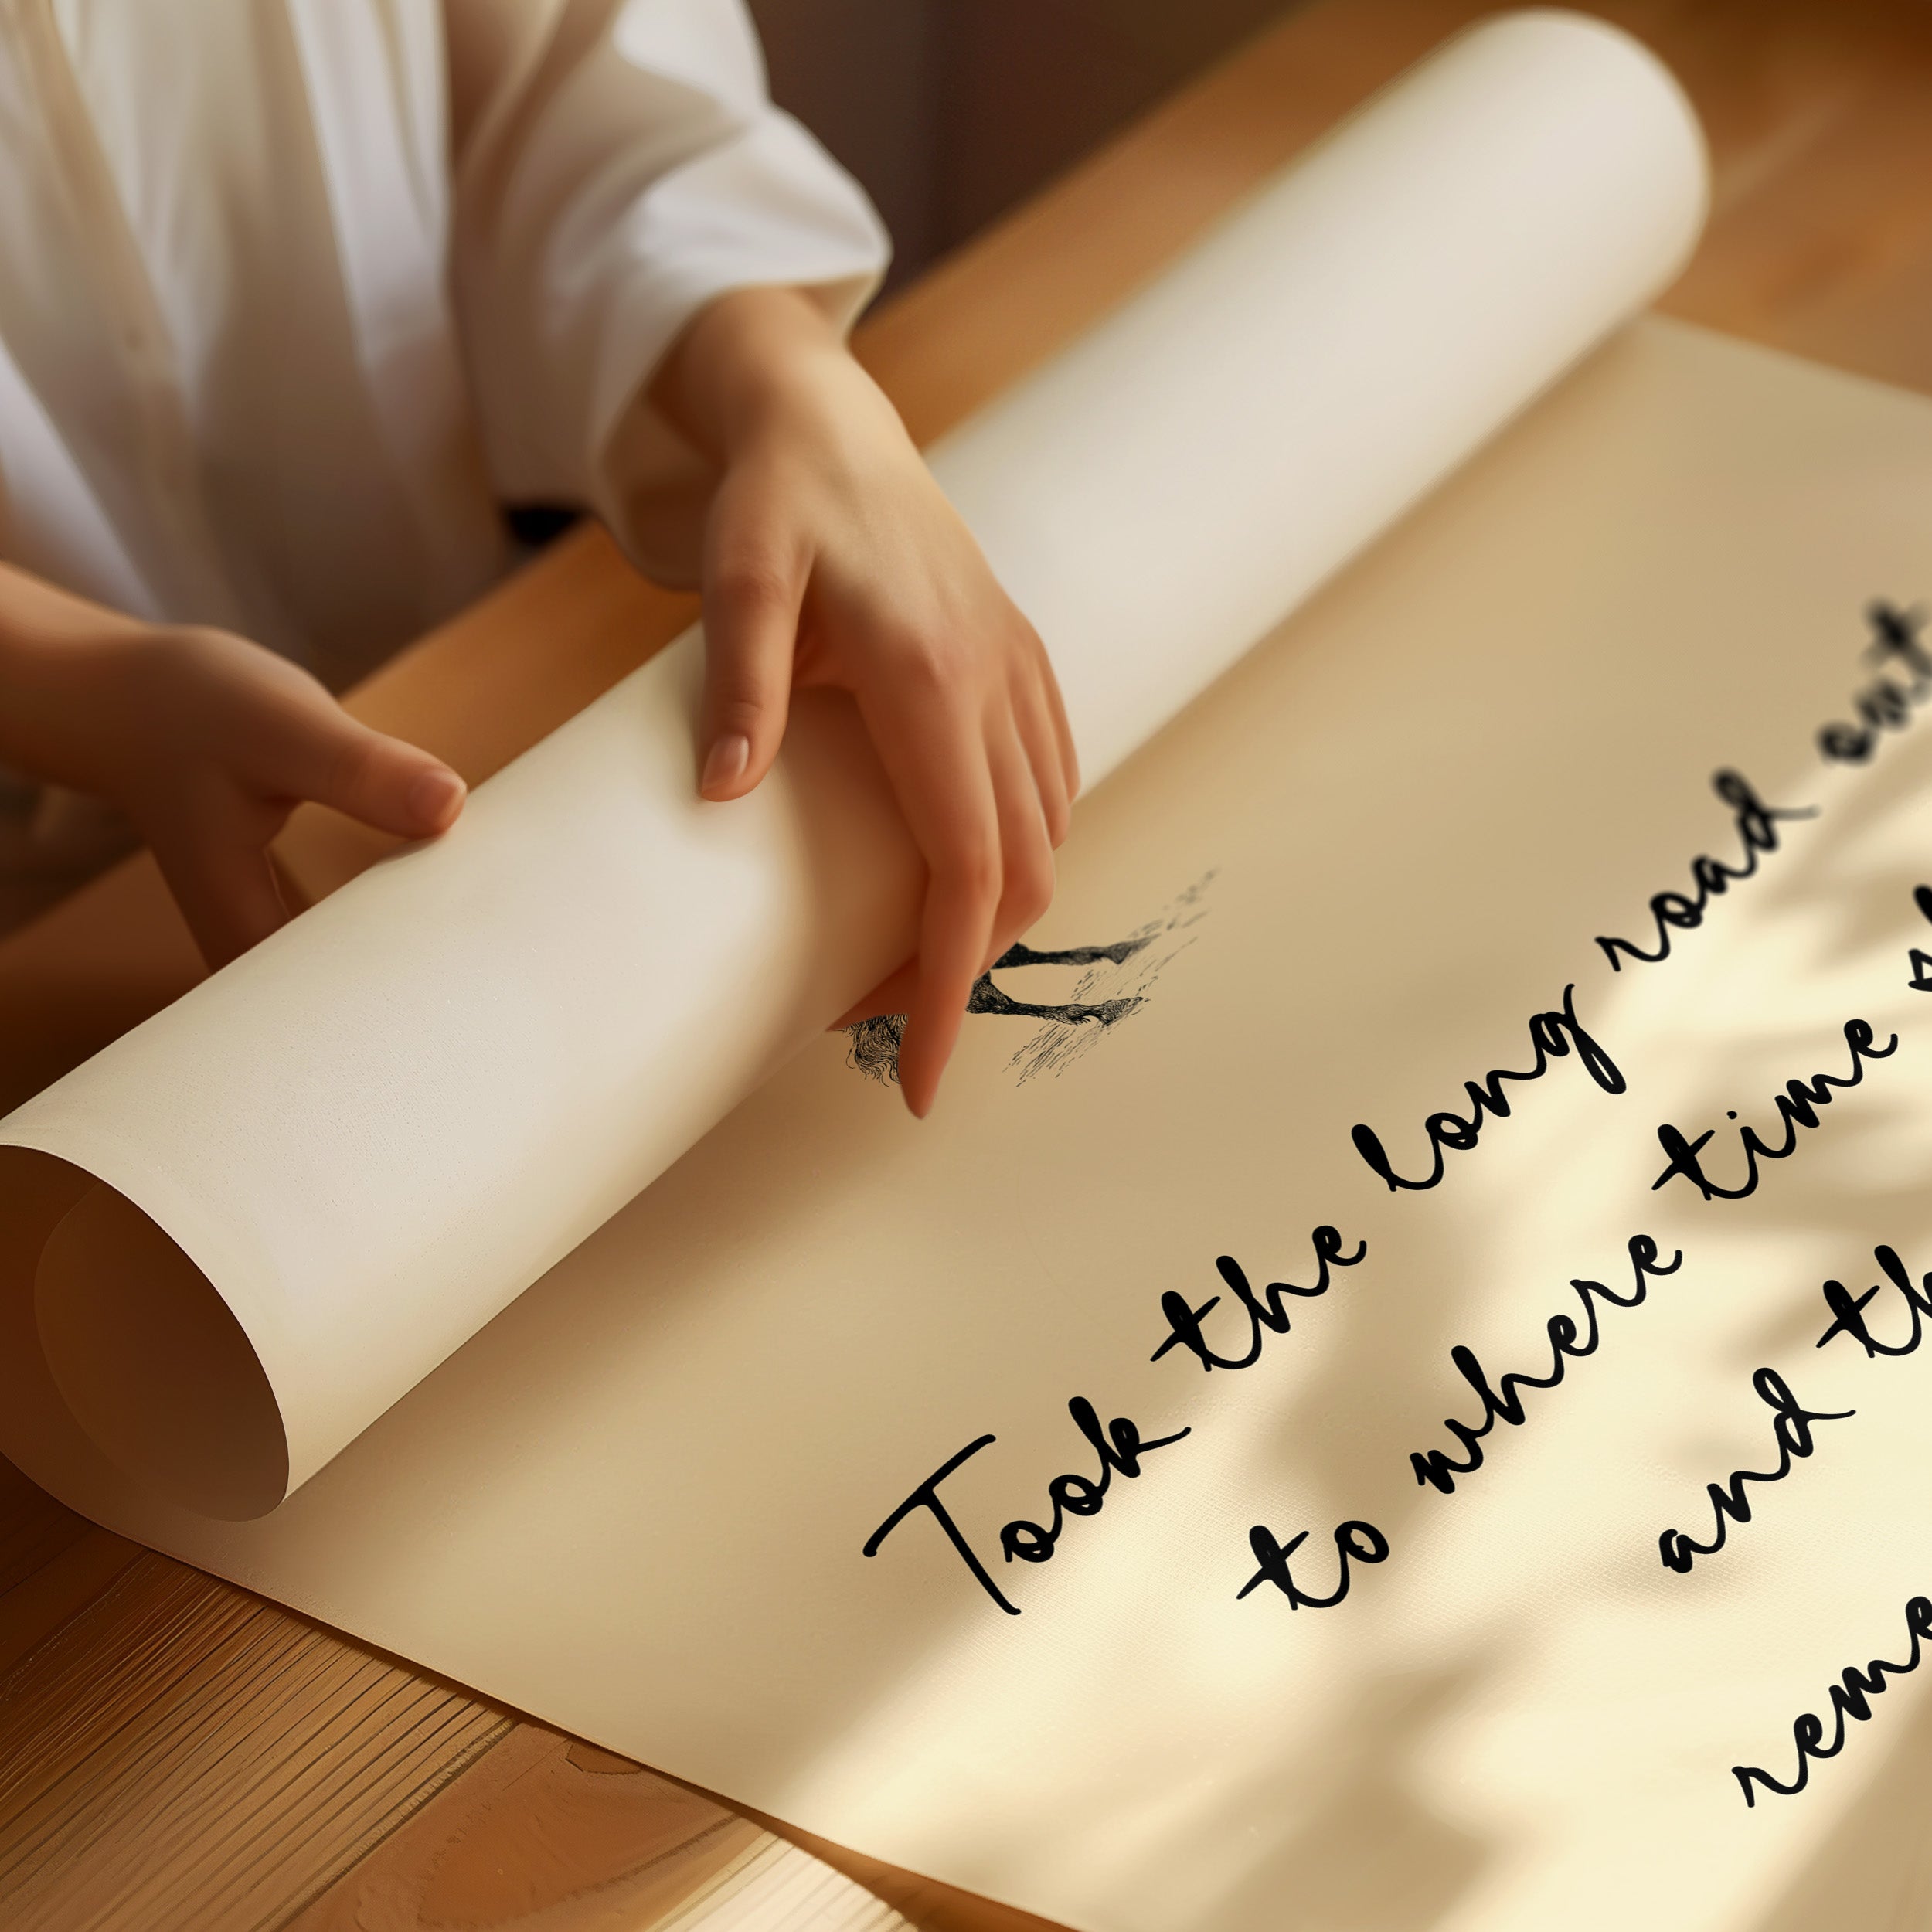 Took the long road out
to where time
and